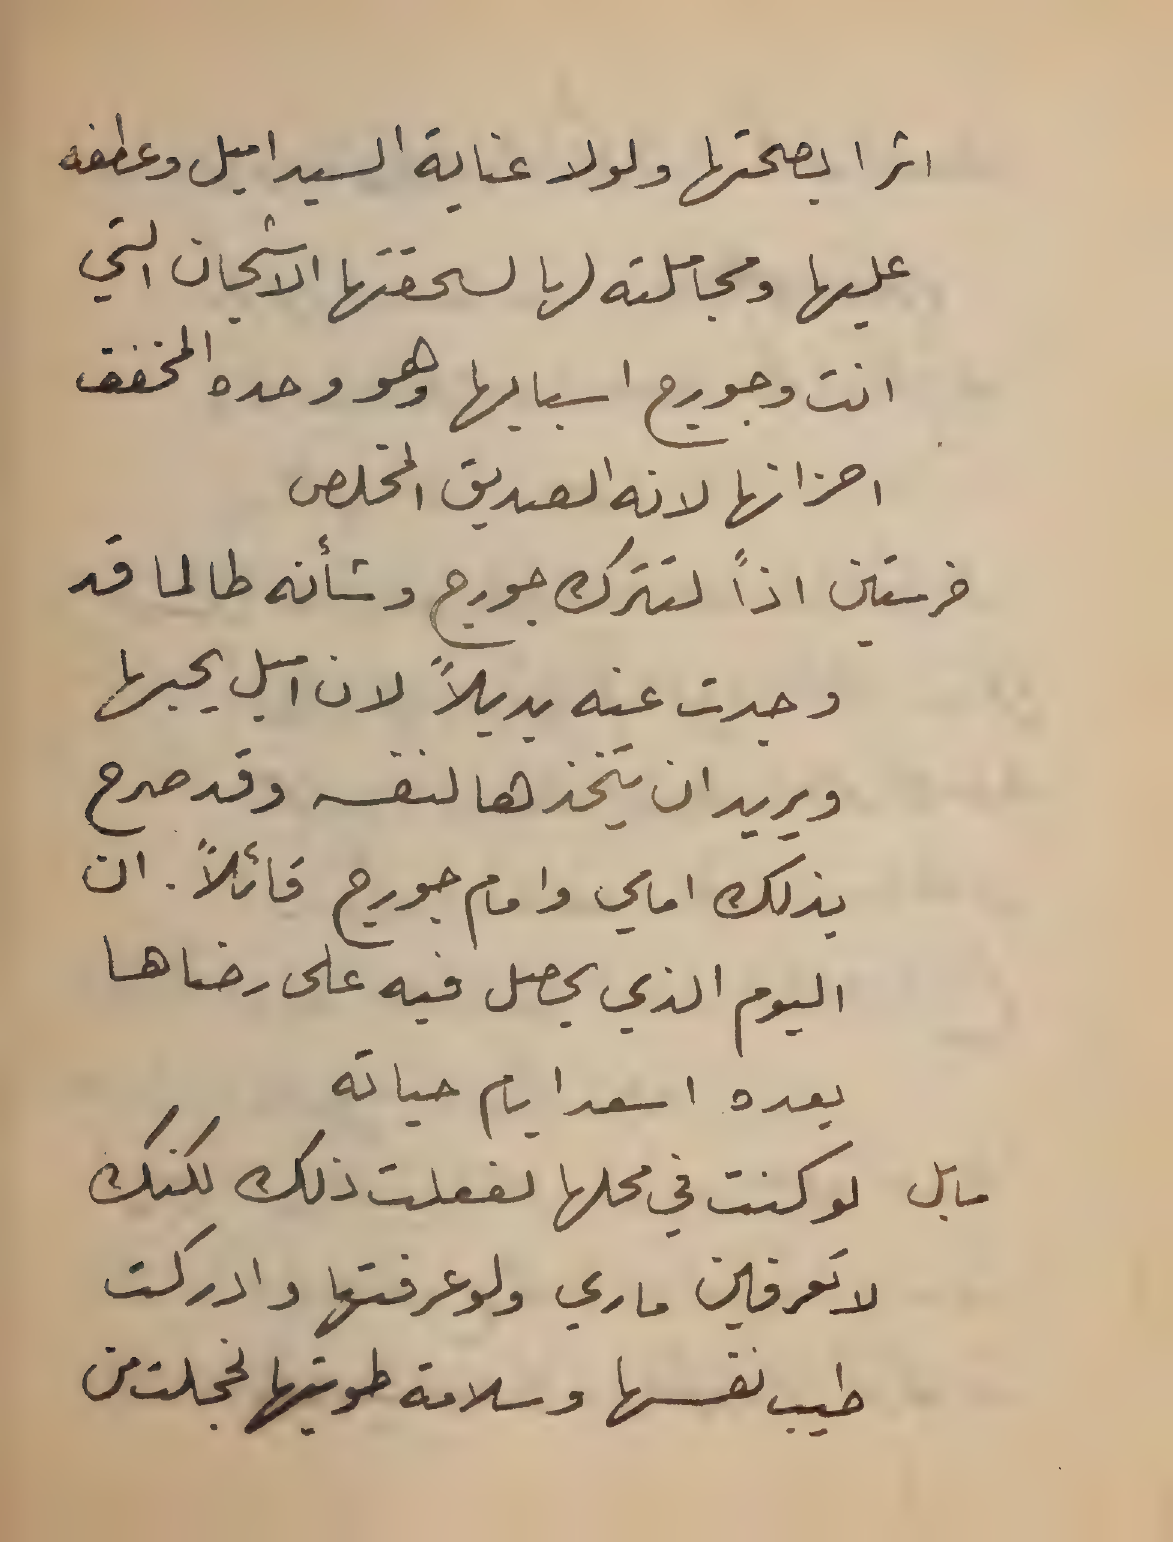 اثرا بصحتها ولولا عناية السيد اميل وعطفه
عليها ومجاملته لها لسحقتها الاشجان التي
انت وجورج اسبابها وهو وحده المخفف
احزانها لانه الصديق المخلص
خرستين اذاً لتترك جورج وشأنه طالما قد
وجدت عنه بديلاً لان اميل يحبها
ويريد ان يتخذها لنفسه وقد صرح
بذلك امامي وامام جورج قائلاً. ان
اليوم الذي يحصل فيه على رضاها
يعده اسعد ايام حياته
مابل لو كنت في محلها لفعلت ذلك لكنك
لا تعرفين ماري ولو عرفتها وادركت
طيب نفسها وسلامة طويتها لخجلت من